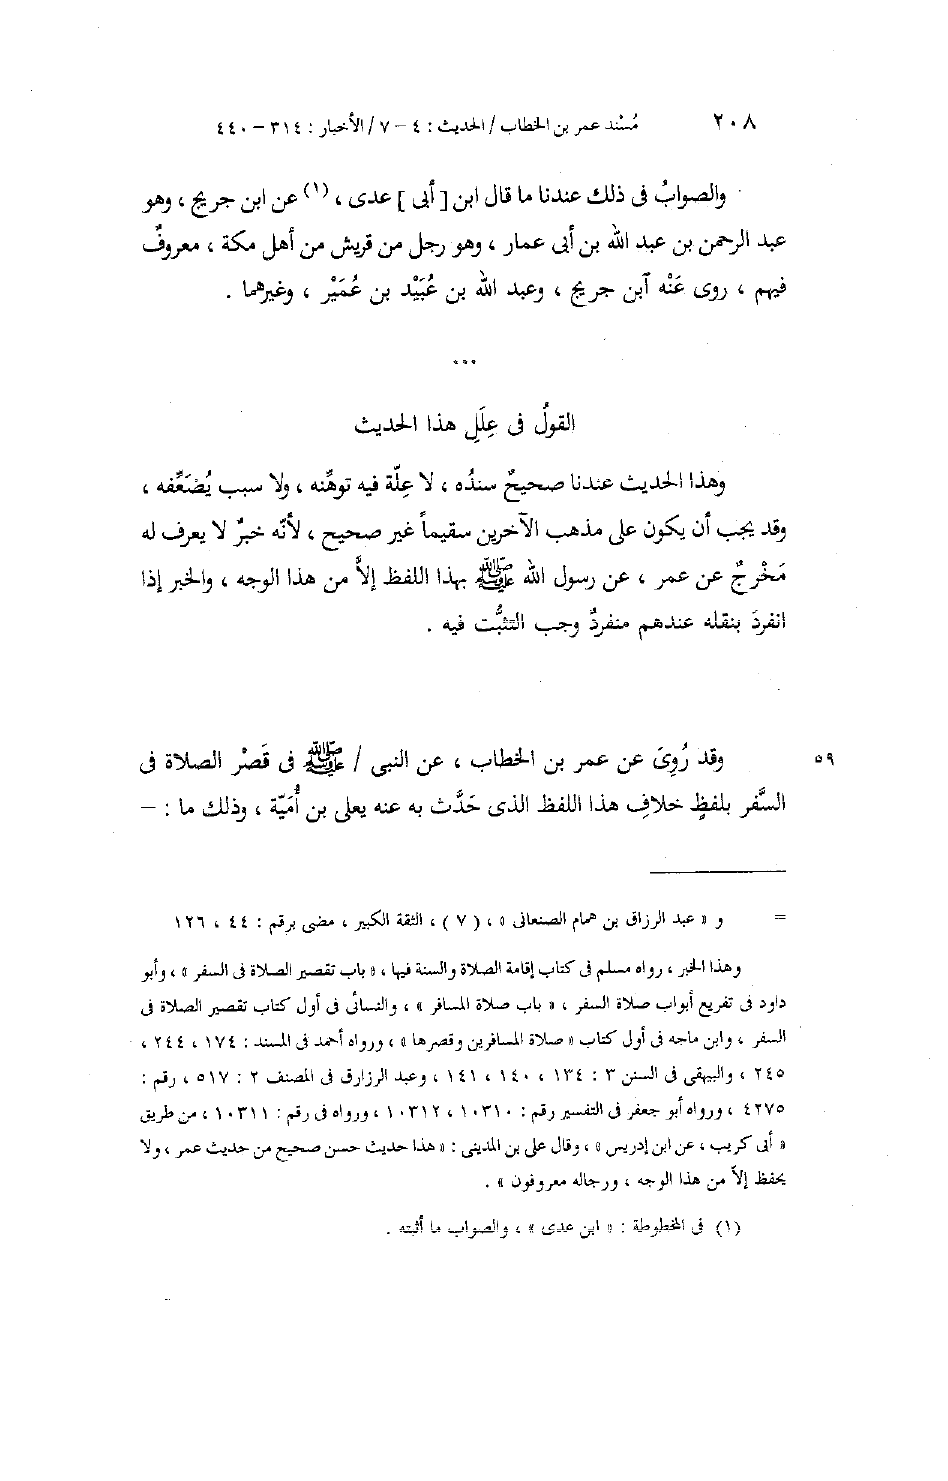 ٢٠٨ مُسْند عمر بن الخطاب / الحديث : ٤ – ٧ / الأخبار : ٣١٤ – ٤٤٠
والصوابُ فى ذلك عندنا ما قال ابن [ أبى ] عدى ، (١) عن ابن جريج ، وهو
عبد الرحمن بن عبد الله بن أبى عمار ، وهو رجل من قريش من أهل مكة ، معروفٌ
فيهم ، روى عَنْه آبن جريج ، وعبد الله بن عُبَيْد بن عُمَيْر ، وغيرهما .
...
القولُ فى عِلَلِ هذا الحديث
وهذا الحديث عندنا صحيحٌ سندُه ، لا عِلّة فيه توهِّنه ، ولا سبب يُضَعِّفه ،
وقد يجب أن يكون على مذهب الآخرين سقيماً غير صحيح ، لأنّه خبرٌ لا يعرف له
مَخْرجٌ عن عمر ، عن رسول الله ﷺ بهذا اللفظ إلاَّ من هذا الوجه ، والخبر إذا
انفردَ بنقله عندهم منفردٌ وجب التثبُّت فيه .
وقد رُوِىَ عن عمر بن الخطاب ، عن النبى / ﷺ فى قَصْر الصلاة فى ٥٩
السَّفر بلفظٍ خلافِ هذا اللفظ الذى حَدَّث به عنه يعلى بن أُمَيّة ، وذلك ما : –
= و « عبد الرزاق بن همام الصنعانى » ، ( ٧ ) ، الثقة الكبير ، مضى برقم : ٤٤ ، ١٢٦
وهذا الخبر ، رواه مسلم فى كتاب إقامة الصلاة والسنة فيها ، « باب تقصير الصلاة فى السفر » ، وأبو
داود فى تفريع أبواب صلاة السفر ، « باب صلاة المسافر » ، والنسائى فى أول كتاب تقصير الصلاة فى
السفر ، وابن ماجه فى أول كتاب « صلاة المسافرين وقصرها » ، ورواه أحمد فى المسند : ١٧٤ ، ٢٤٤ ،
٢٤٥ ، والبيهقى فى السنن ٣ : ١٣٤ ، ١٤٠ ، ١٤١ ، وعبد الرزارق فى المصنف ٢ : ٥١٧ ، رقم :
٤٢٧٥ ، ورواه أبو جعفر فى التفسير رقم : ١٠٣١٠ ، ١٠٣١٢ ، ورواه فى رقم : ١٠٣١١ ، من طريق
« أبى كريب ، عن ابن إدريس » ، وقال على بن المدينى : « هذا حديث حسن صحيح من حديث عمر ، ولا
يحفظ إلاّ من هذا الوجه ، ورجاله معروفون » .
(١) فى المخطوطة : « ابن عدى » ، والصواب ما أثبته .